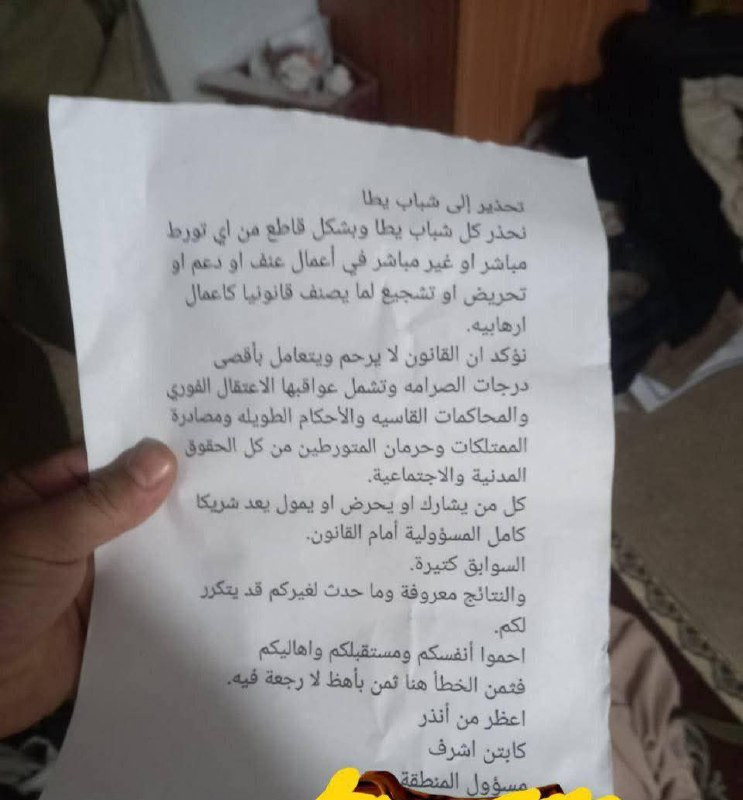 تحذير إلى شباب يطا
نحذر كل شباب يطا وبشكل قاطع من اي تورط
مباشر او غير مباشر في أعمال عنف او دعم او
تحريض او تشجيع لما يصنف قانونيا كاعمال
ارهابيه.
نؤكد ان القانون لا يرحم ويتعامل بأقصى
درجات الصرامه وتشمل عواقبها الاعتقال الفوري
والمحاكمات القاسيه والأحكام الطويله ومصادرة
الممتلكات وحرمان المتورطين من كل الحقوق
المدنية والاجتماعية.
كل من يشارك او يحرض او يمول يعد شريكا
كامل المسؤولية أمام القانون.
السوابق كثيرة.
والنتائج معروفة وما حدث لغيركم قد يتكرر
لكم.
احموا أنفسكم ومستقبلكم واهاليكم
فثمن الخطأ هنا ثمن بأهظ لا رجعة فيه.
اعظر من أنذر
كابتن اشرف
مسؤول المنطقة